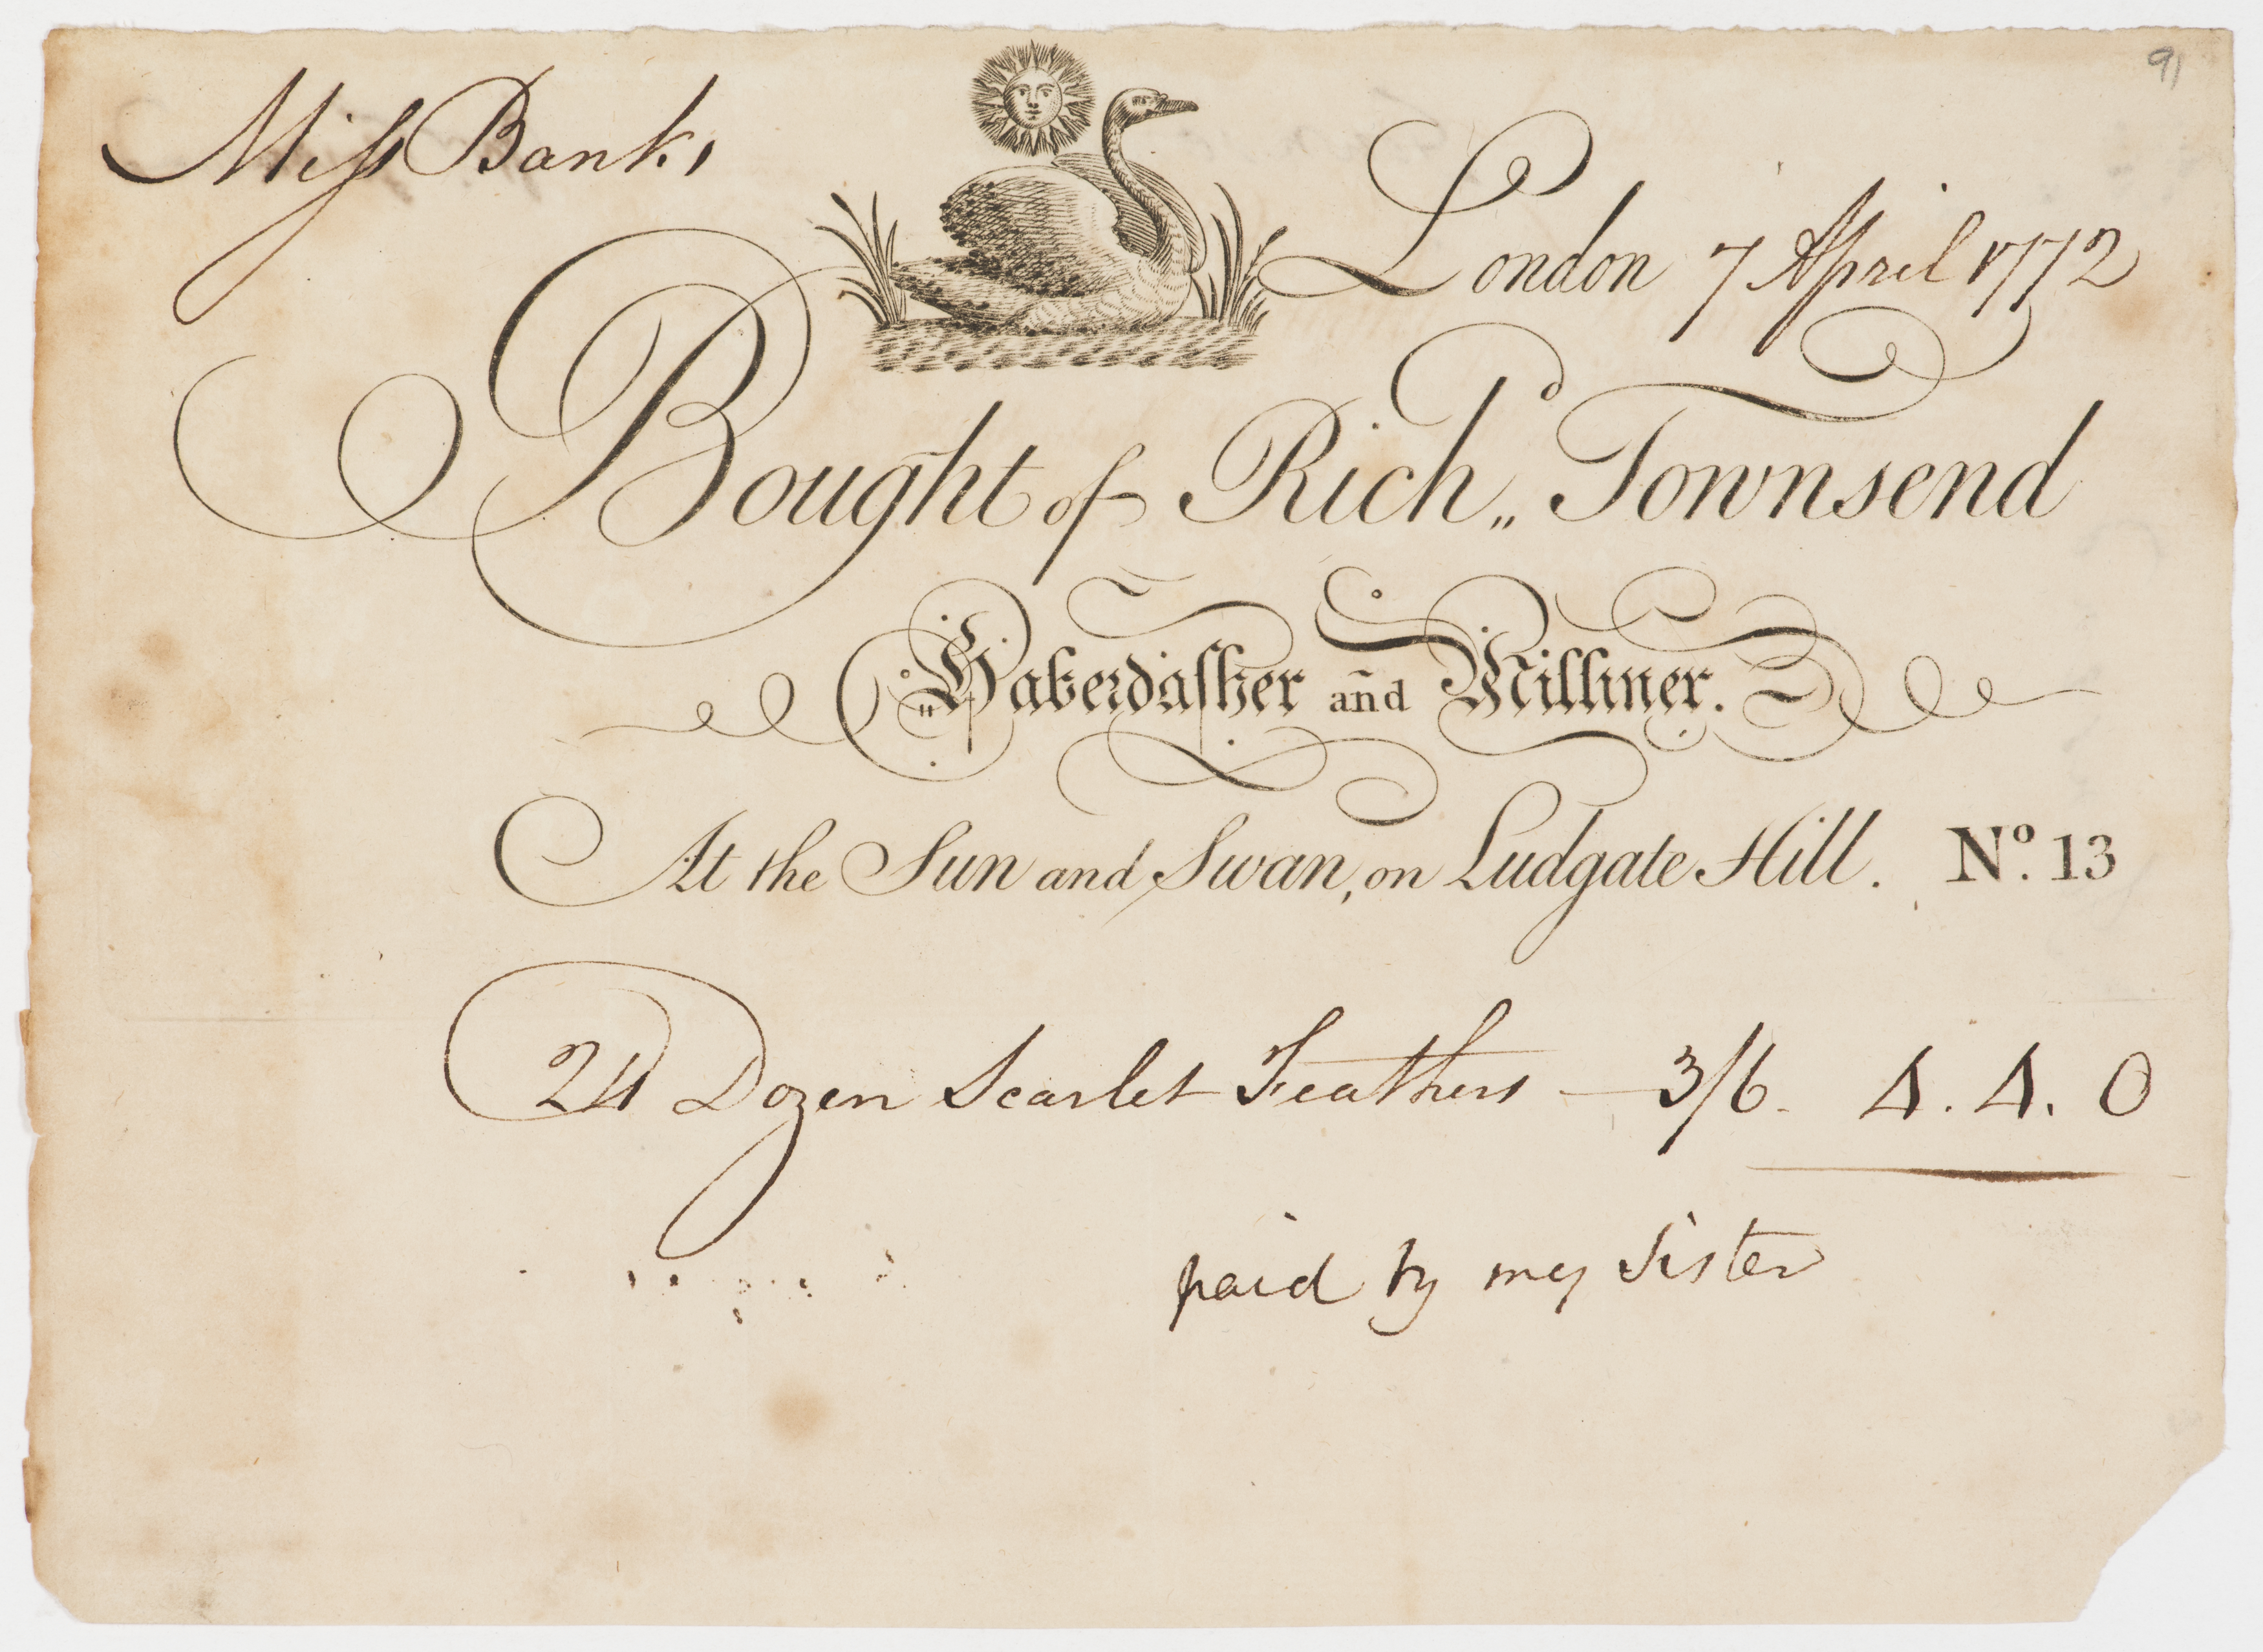 91
Miſs Banks
London 7 April 1772
Bought of Rich,,ᵈ Townsend
Haberdaſher and Milliner.
At the Sun and Swan, on Ludgate Hill. Nº. 13
24 Dozen Scarlet Feathers — 3/6. 4. 4. 0
paid by my Sister